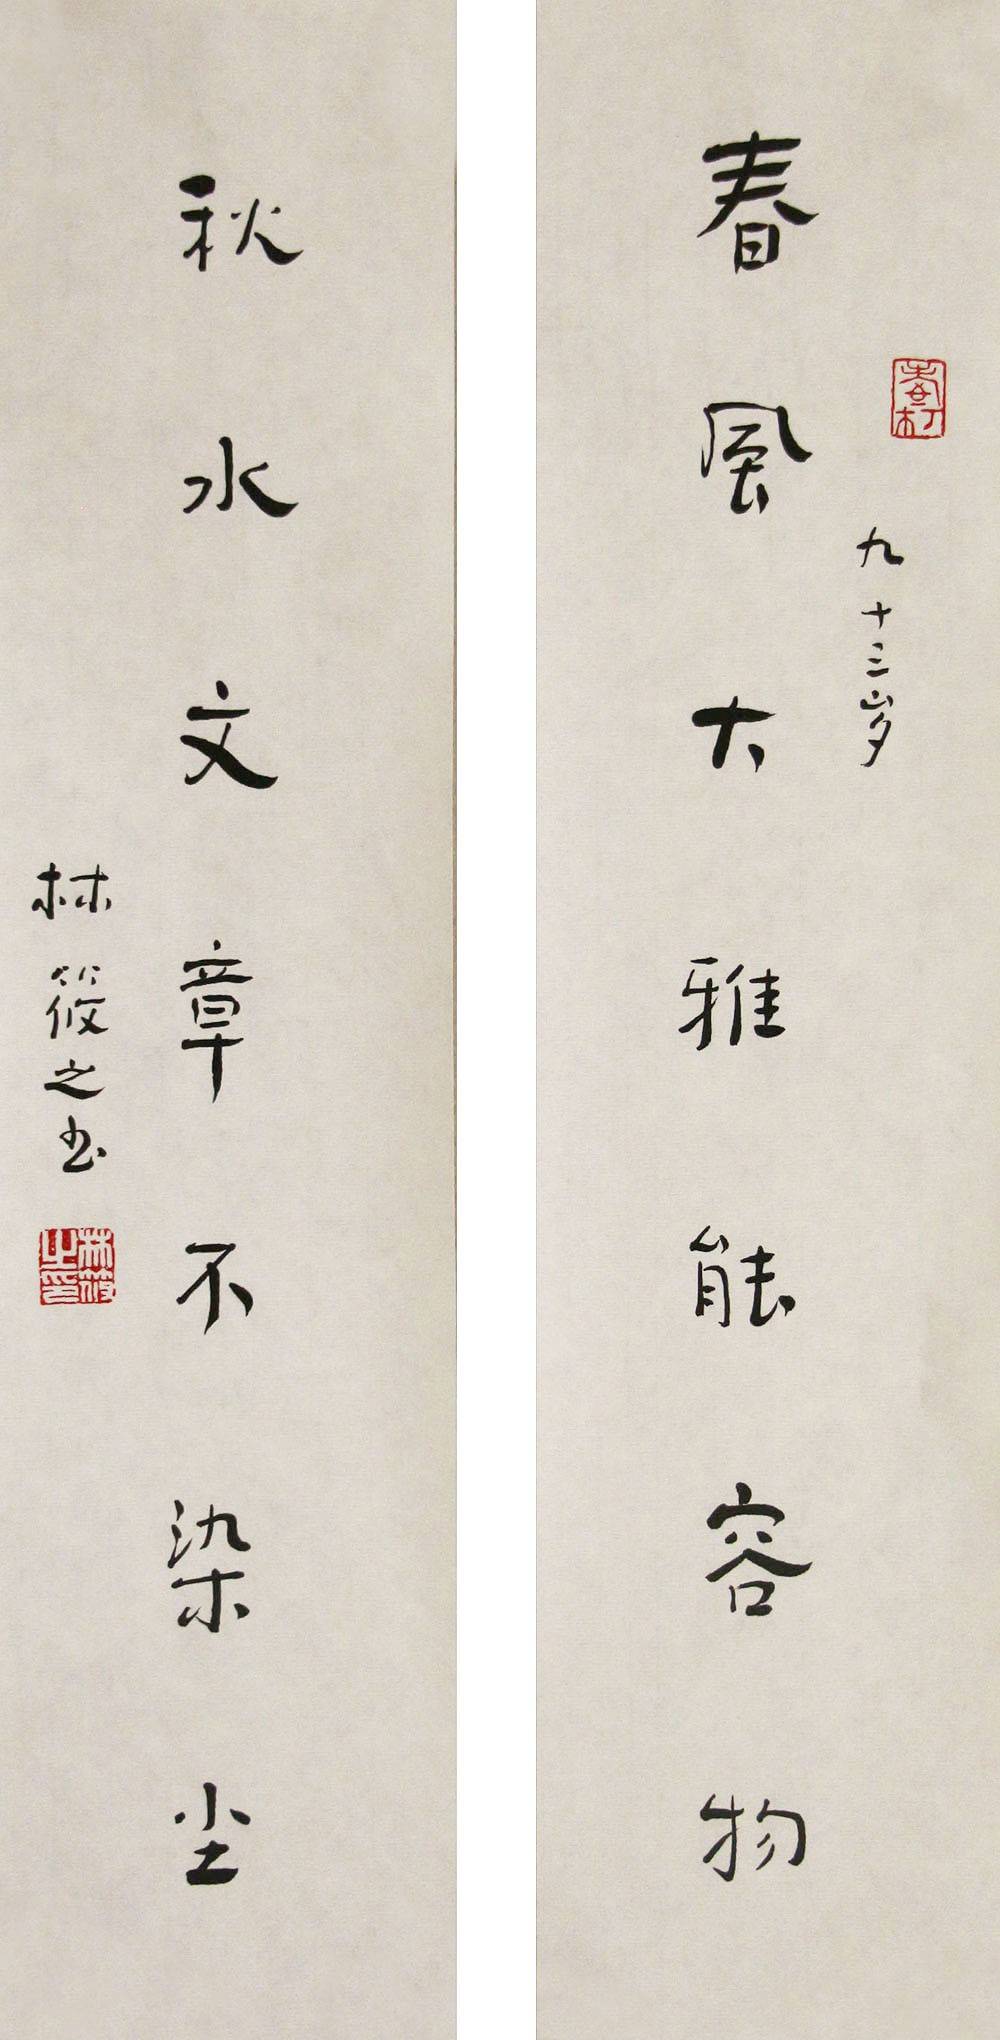 春風大雅能容物
九十三岁
秋水文章不染尘
林筱之书
林筱之印